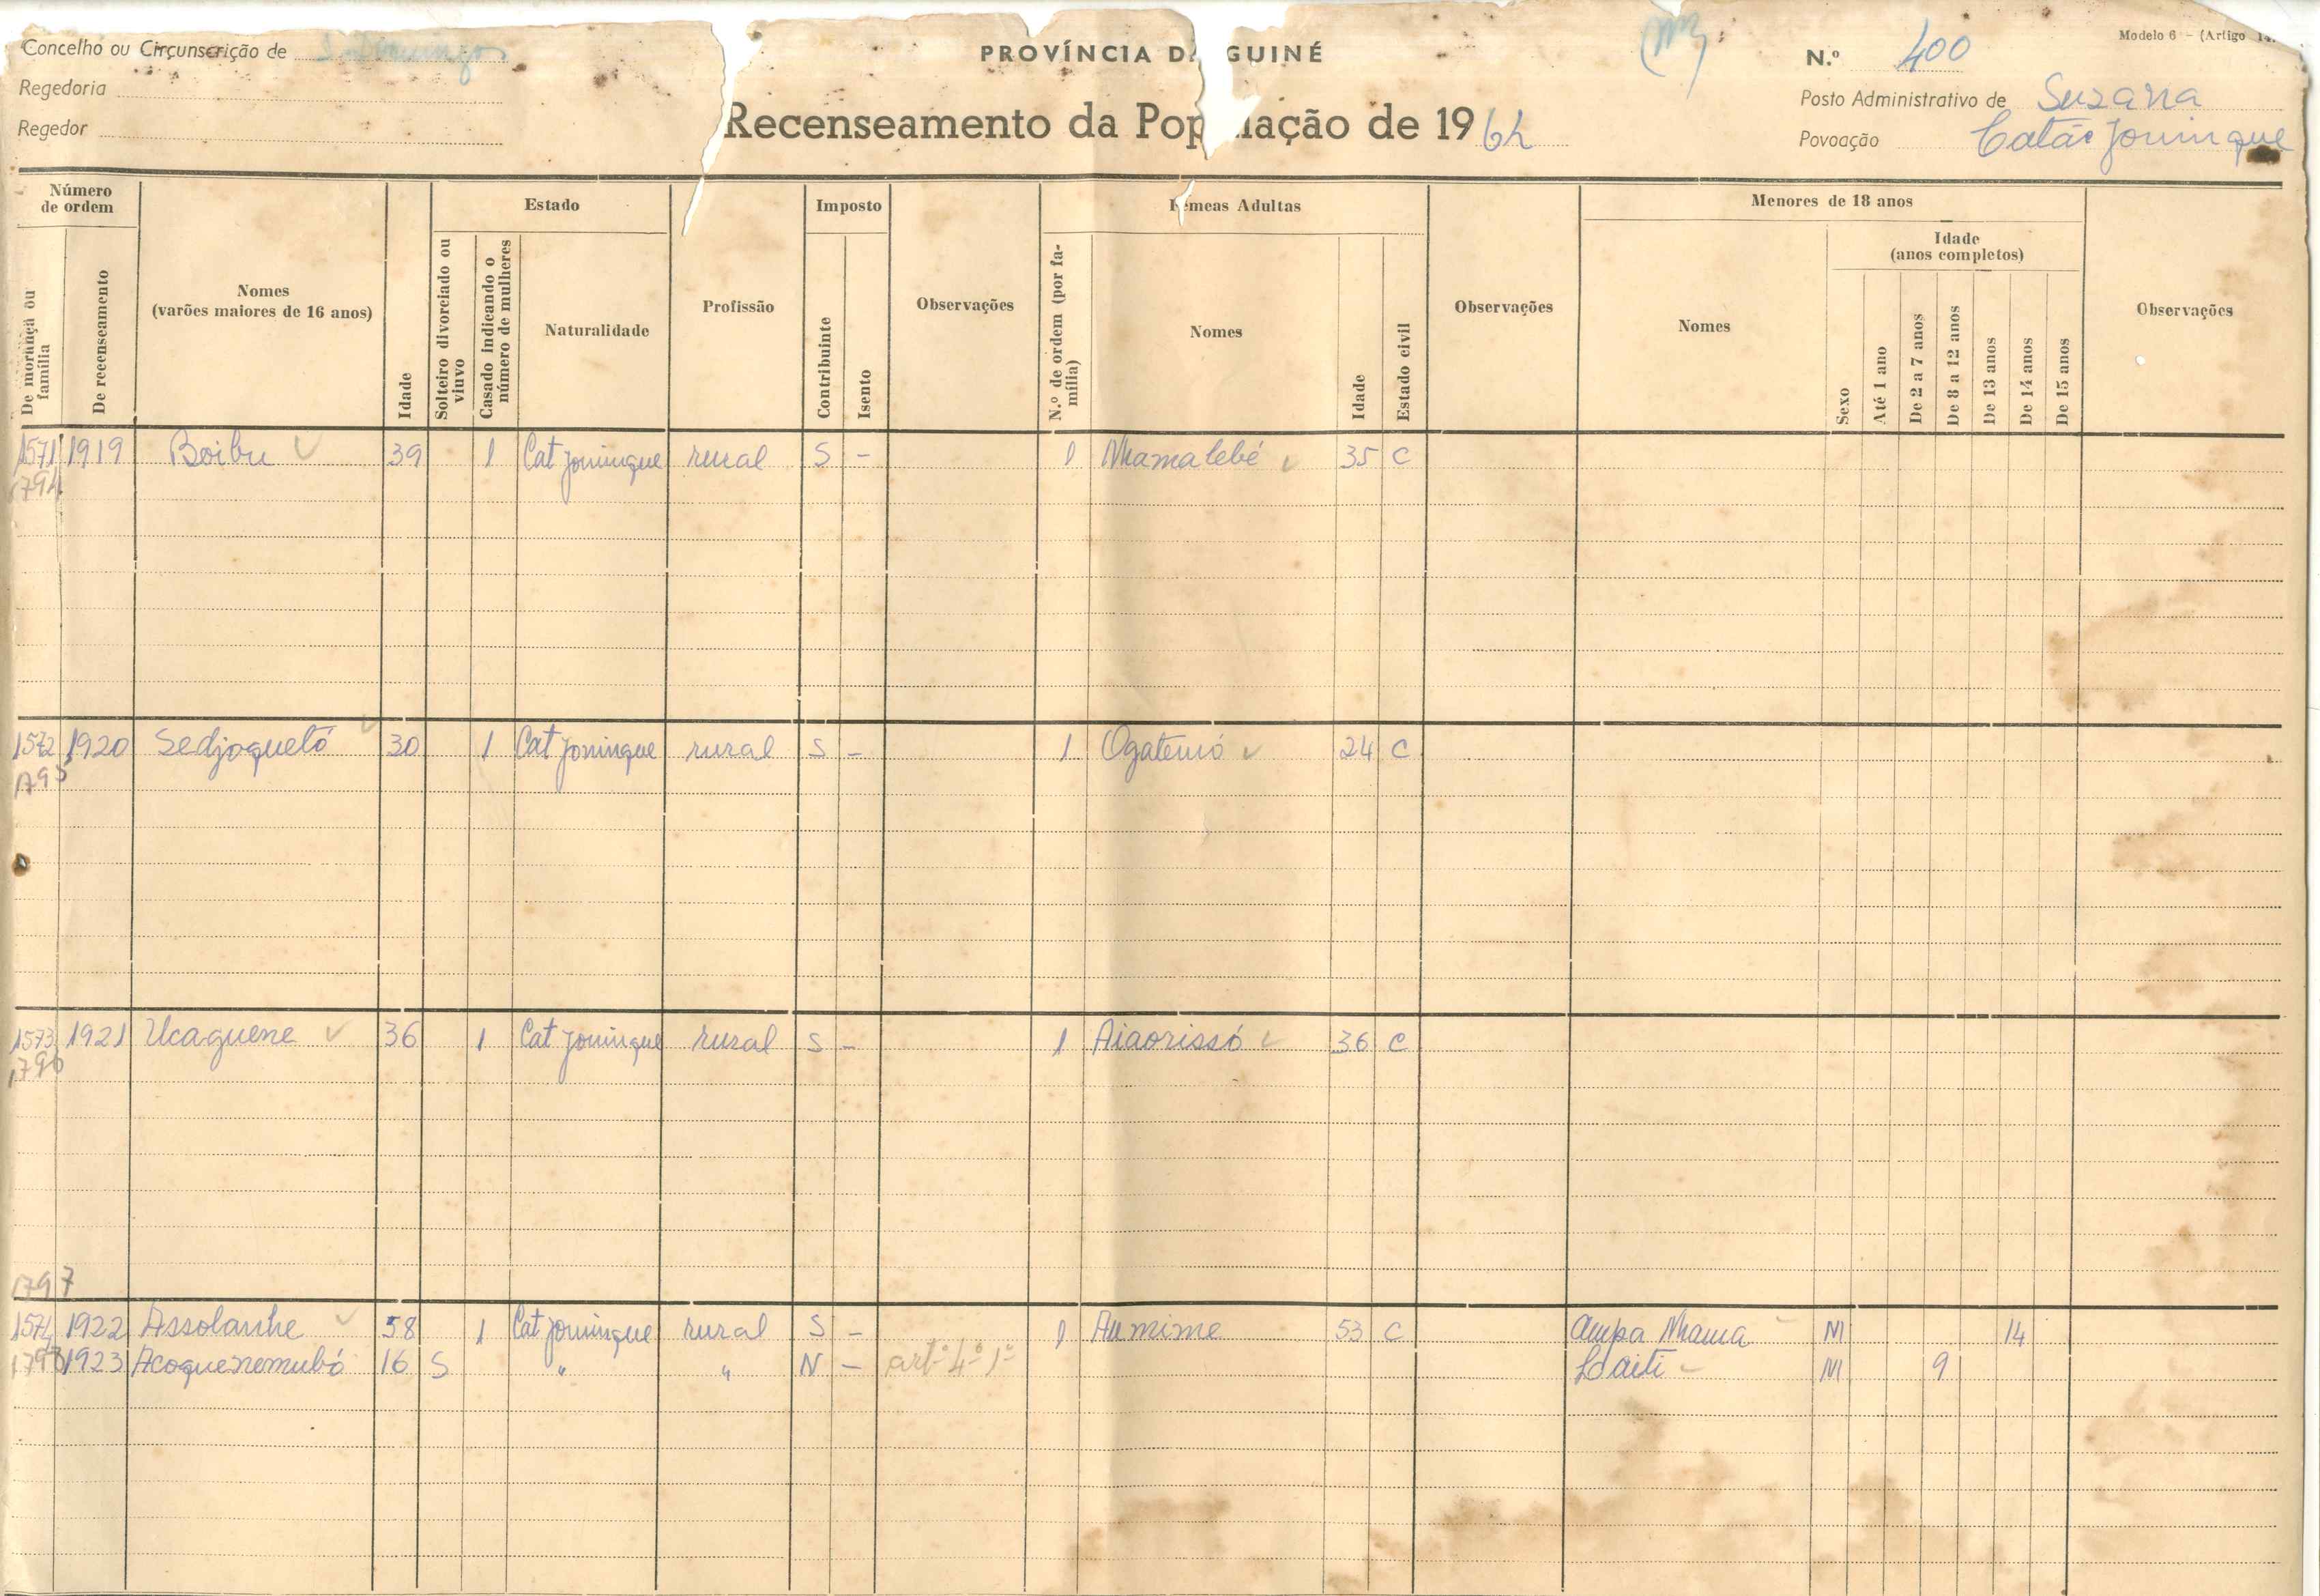 Concelho ou Circunscrição de S. Domingos
Regedoria
Regedor
PROVÍNCIA DA GUINÉ
Recenseamento da População de 1964
Modelo 6 — (Artigo 14.
N.º 400
Posto Administrativo de Suzana
Povoação Catão Joningue
Número de ordem
De morança ou família
De recenseamento
Nomes (varões maiores de 16 anos)
Idade
Estado
Solteiro divorciado ou viuvo
Casado indicando o número de mulheres
Naturalidade
Profissão
Imposto
Contribuinte
Isento
Observações
Fêmeas Adultas
N.º de ordem (por família)
Nomes
Idade
Estado civil
Observações
Menores de 18 anos
Nomes
Sexo
Idade (anos completos)
Até 1 ano
De 2 a 7 anos
De 8 a 12 anos
De 13 anos
De 14 anos
De 15 anos
Observações
1571 1919 Boibu 39 1 Cat Joningue rural S - 1 Nhamalebé 35 C
1794
1572 1920 Sedjoquetó 30 1 Cat Joningue rural S - 1 Ogatemó 24 C
1795
1573 1921 Ucaguene 36 1 Cat Joningue rural S - 1 Aiaorissó 36 C
1796
1797
1574 1922 Assolanhe 58 1 Cat Joningue rural S - 1 Aumime 53 C Ampa Nhama M 14
1798 1923 Acoquenemubó 16 S " " N - artº 4º 1º Laiti M 9